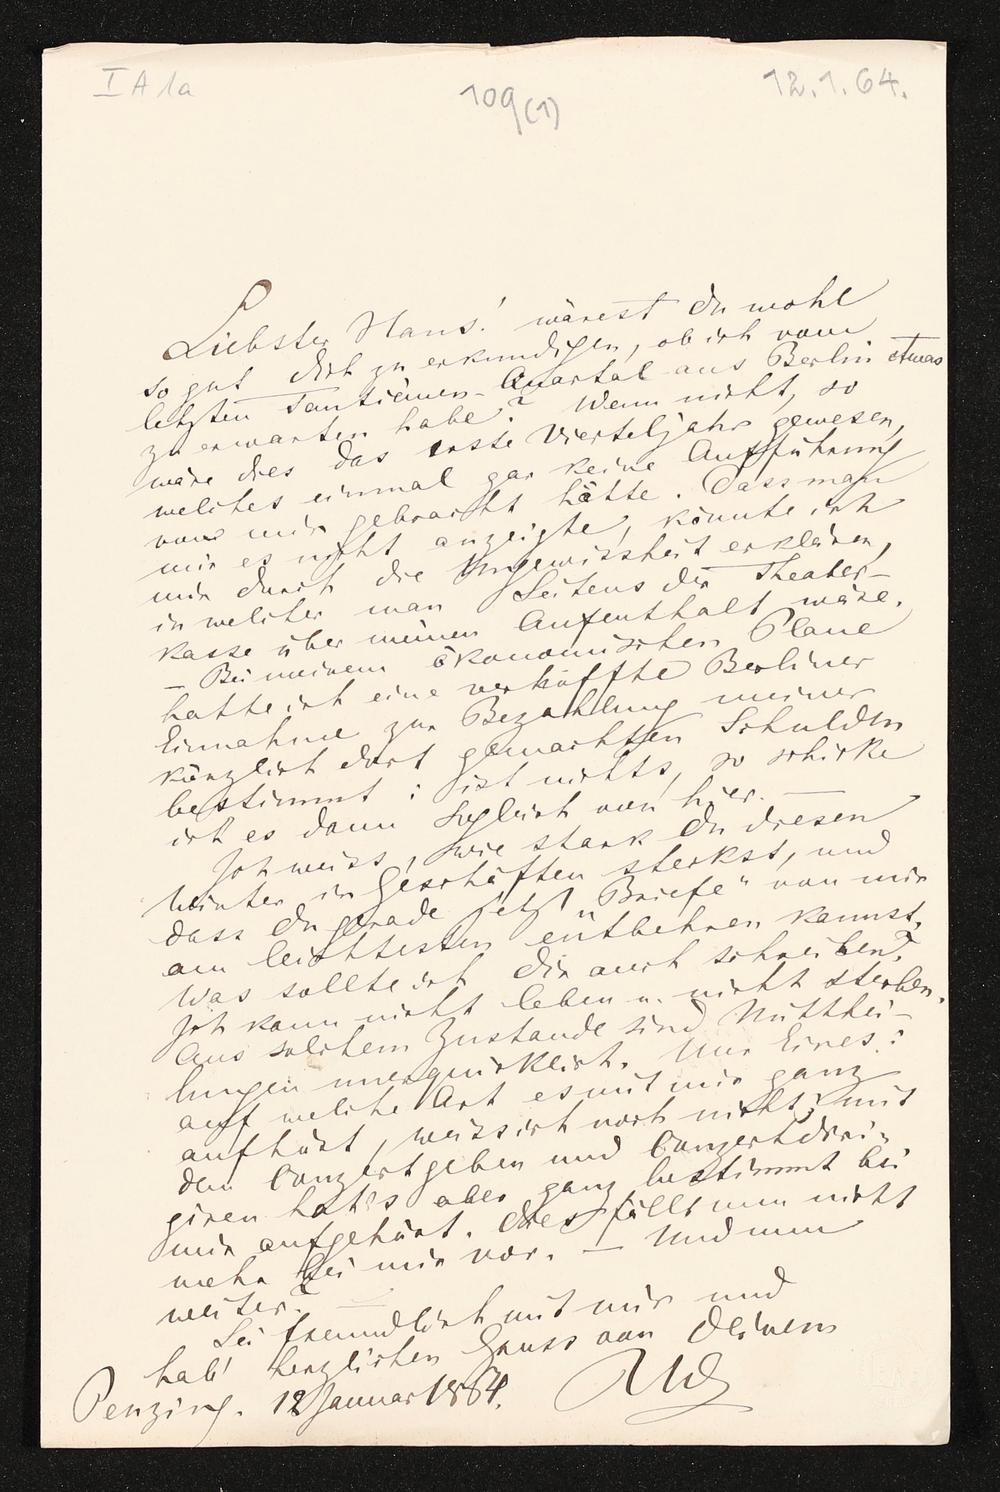 I A 1a
109(1)
12.1.64.
Liebster Hans! wärest Du wohl
so gut Dich zu erkundigen, ob ich vom
letzten Tantièmen-Quartal aus Berlin etwas
zu erwarten habe? Wenn nicht, so
wäre dies das erste Vierteljahr gewesen,
welches einmal gar keine Aufführung
von mir gebracht hätte. Dass man
mir es nicht anzeigte, könnte ich
mir durch die Ungewissheit erklären,
in welcher man Seitens der Theater-
kasse über meinen Aufenthalt wäre.
– Bei meinem ökonomischen Plane
hatte ich eine verhoffte Berliner
Einnahme zur Bezahlung meiner
kürzlich dort gemachten Schulden
bestimmt: ist nichts, so schicke
ich es dann sogleich von hier. —
Ich weiss, wie stark Du diesen
Winter in Geschäften steckst, und
dass Du gerade jetzt „Briefe" von mir
am leichtesten entbehren kannst.
Was sollte ich Dir auch schreiben?
Ich kann nicht leben u. nicht sterben.
Aus solchem Zustande sind Mitthei-
lungen unerquicklich. Nur Eines:
auf welche Art es mit mir ganz
aufhört, weiss ich noch nicht; mit
dem Conzertgeben und Conzertdiri-
giren hat's aber ganz bestimmt bei
mir aufgehört. Dies fällt nun nicht
mehr bei mir vor. — Und nun
weiter? —
Sei freundlich mit mir und
hab' herzlichen Gruss von Deinem
Penzing. 12 Januar 1864.
RW